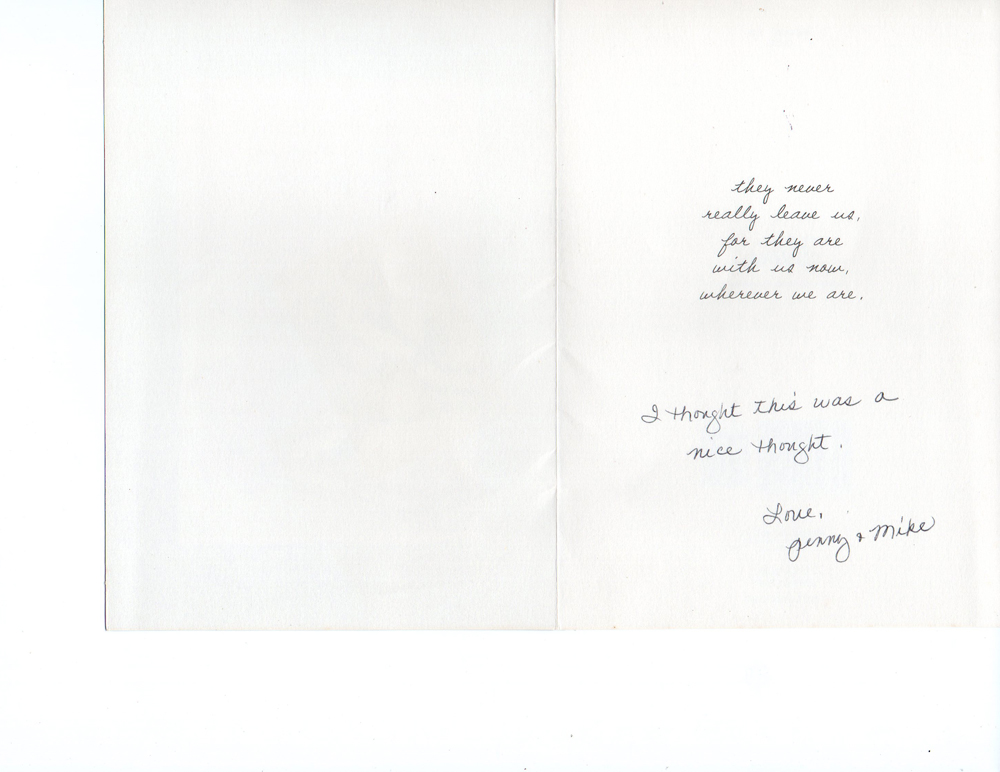 they never
really leave us,
for they are
with us now,
wherever we are.
I thought this was a
nice thought.
Love,
Jenny & Mike